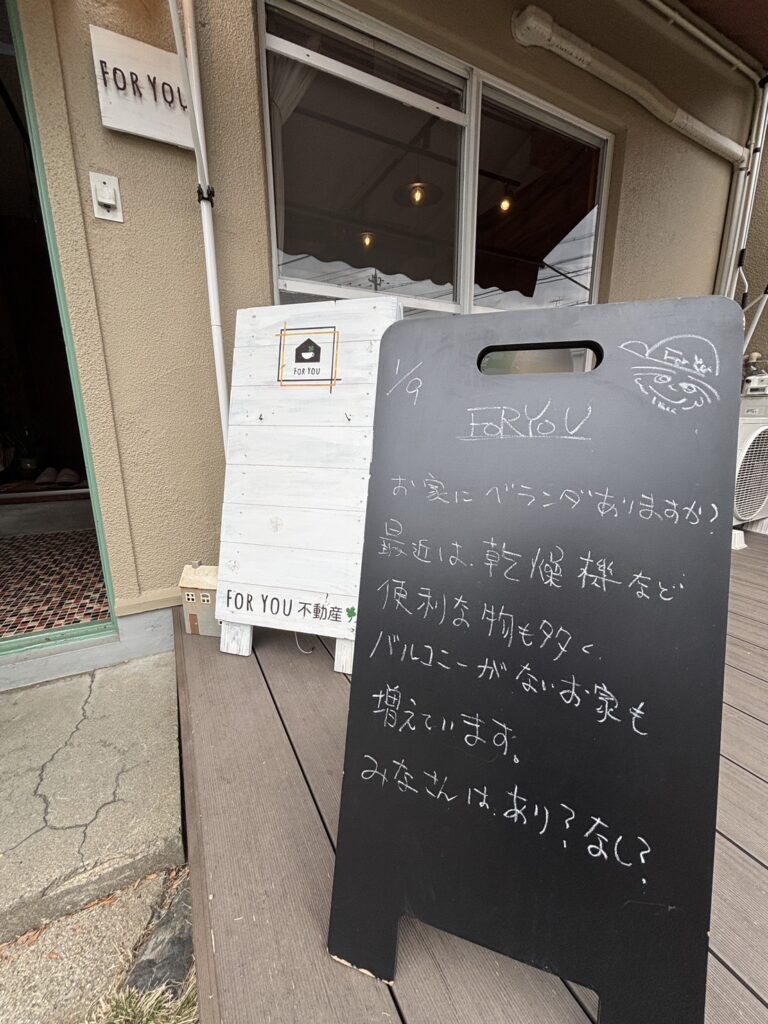 FOR YOU
FOR YOU
FOR YOU 不動産
1/9
For You
FORYOU
お家にベランダありますか?
最近は、乾燥機など
便利な物も多く、
バルコニーがないお家も
増えています。
みなさんは、あり?なし?